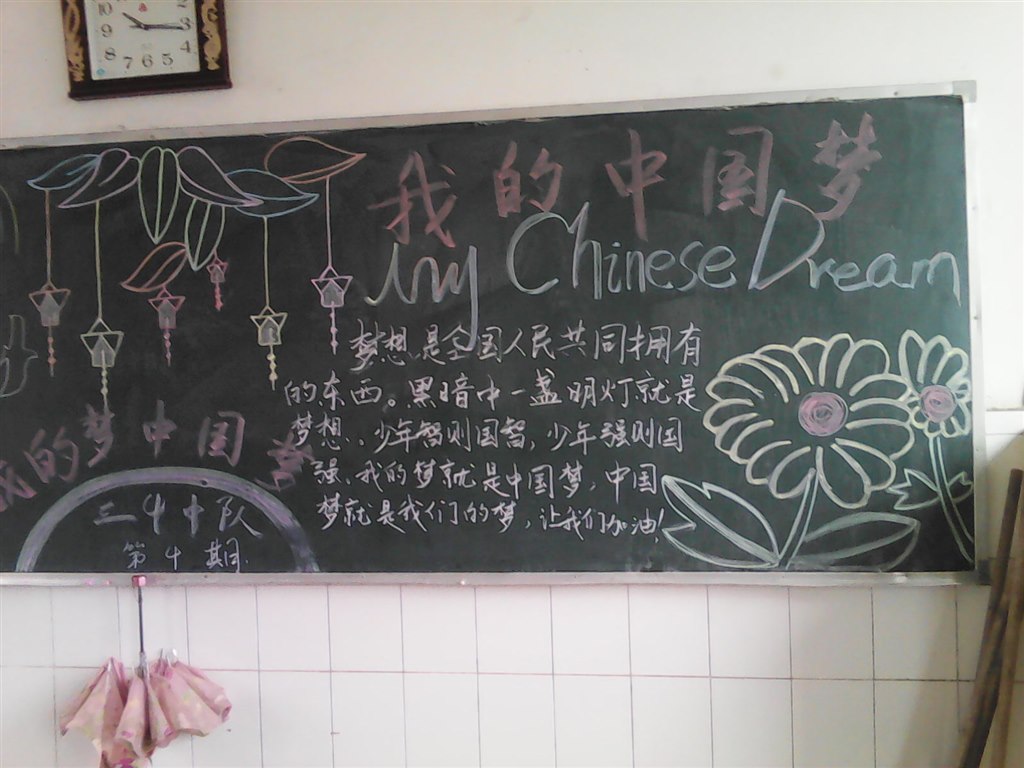 10
9
8
7
6
5
4
3
我的中国梦
My Chinese Dream
梦想是全国人民共同拥有
的东西。黑暗中一盏明灯就是
梦想..少年智则国智,少年强则国
强、我的梦就是中国梦,中国
梦就是我们的梦,让我们加油!
我的梦中国梦
三4中队
第4期